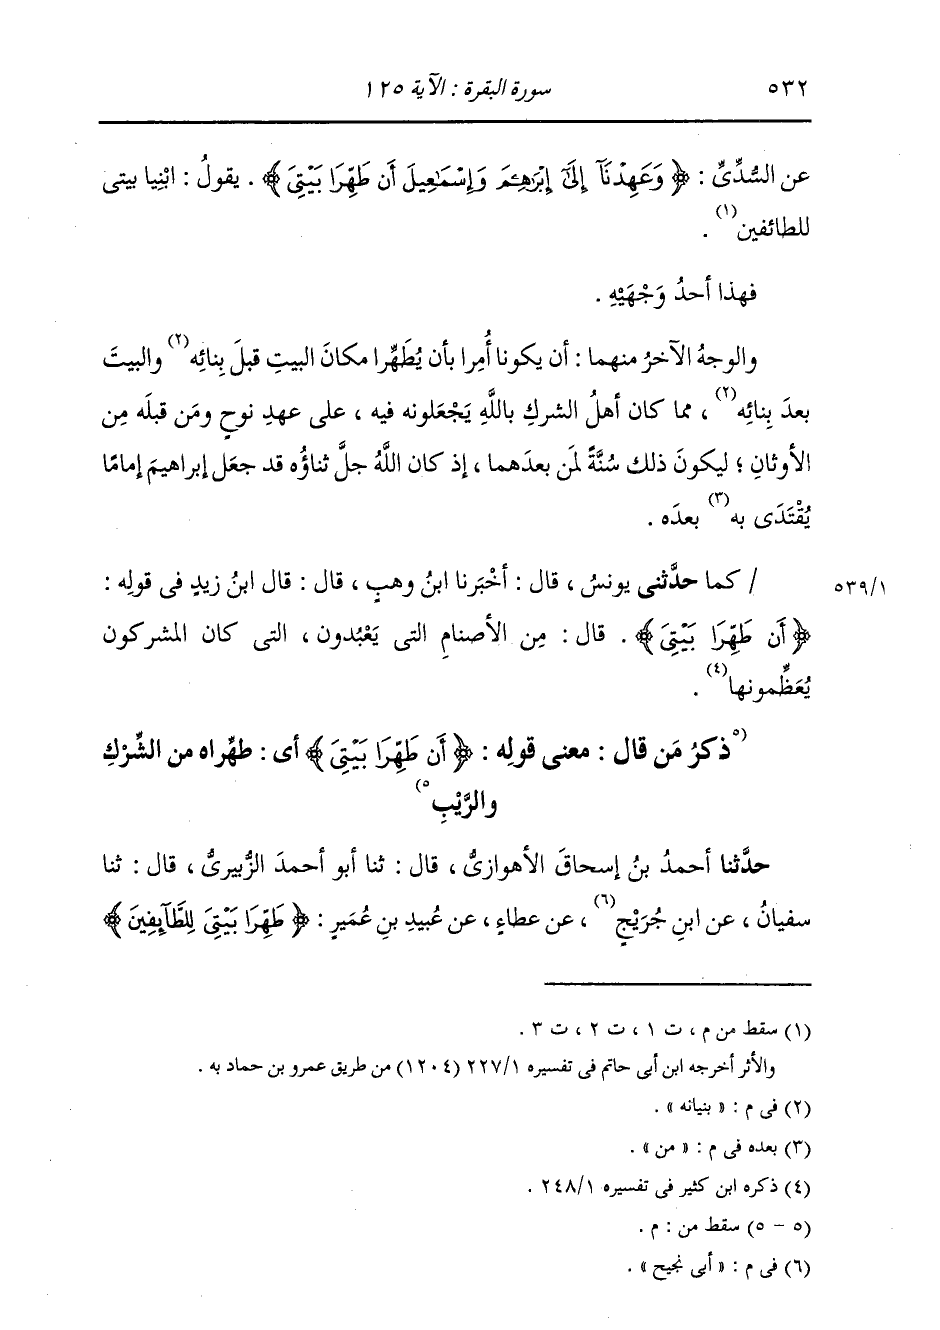 ٥٣٢ سورة البقرة : الآية ١٢٥
عن السُّدِّىِّ : ﴿ وَعَهِدْنَآ إِلَىٰٓ إِبْرَٰهِـۧمَ وَإِسْمَـٰعِيلَ أَن طَهِّرَا بَيْتِىَ ﴾ . يقولُ : ابْنِيا بيتى
للطائفين(١) .
فهذا أحدُ وَجْهَيْهِ .
والوجهُ الآخرُ منهما : أن يكونا أُمِرا بأن يُطَهِّرا مكانَ البيتِ قبلَ بِنائِه(٢) والبيتَ
بعدَ بِنائِه(٢) ، مما كان أهلُ الشركِ باللَّهِ يَجْعَلونه فيه ، على عهدِ نوحٍ ومَن قبلَه مِن
الأوثانِ ؛ ليكونَ ذلك سُنَّةً لمَن بعدَهما ، إذ كان اللَّهُ جلَّ ثناؤُه قد جعَل إبراهيمَ إمامًا
يُقْتَدَى به(٣) بعدَه .
/ كما حدَّثنى يونسُ ، قال : أخْبَرنا ابنُ وهبٍ ، قال : قال ابنُ زيدٍ فى قولِه : ٥٣٩/١
﴿ أَن طَهِّرَا بَيْتِىَ ﴾ . قال : مِن الأصنامِ التى يَعْبُدون ، التى كان المشركون
يُعَظِّمونها(٤) .
(٥ذكرُ مَن قال : معنى قولِه : ﴿ أَن طَهِّرَا بَيْتِىَ ﴾ أى : طهِّراه من الشِّرْكِ
والرَّيْبِ٥)
حدَّثنا أحمدُ بنُ إسحاقَ الأهوازىُّ ، قال : ثنا أبو أحمدَ الزُّبيرىُّ ، قال : ثنا
سفيانُ ، عن ابنِ جُرَيْجٍ(٦) ، عن عطاءٍ ، عن عُبيدِ بنِ عُمَيرٍ : ﴿ طَهِّرَا بَيْتِىَ لِلطَّآئِفِينَ ﴾
(١) سقط من م ، ت ١ ، ت ٢ ، ت ٣ .
والأثر أخرجه ابن أبى حاتم فى تفسيره ٢٢٧/١ (١٢٠٤) من طريق عمرو بن حماد به .
(٢) فى م : « بنيانه » .
(٣) بعده فى م : « من » .
(٤) ذكره ابن كثير فى تفسيره ٢٤٨/١ .
(٥ - ٥) سقط من : م .
(٦) فى م : « أبى نجيح » .